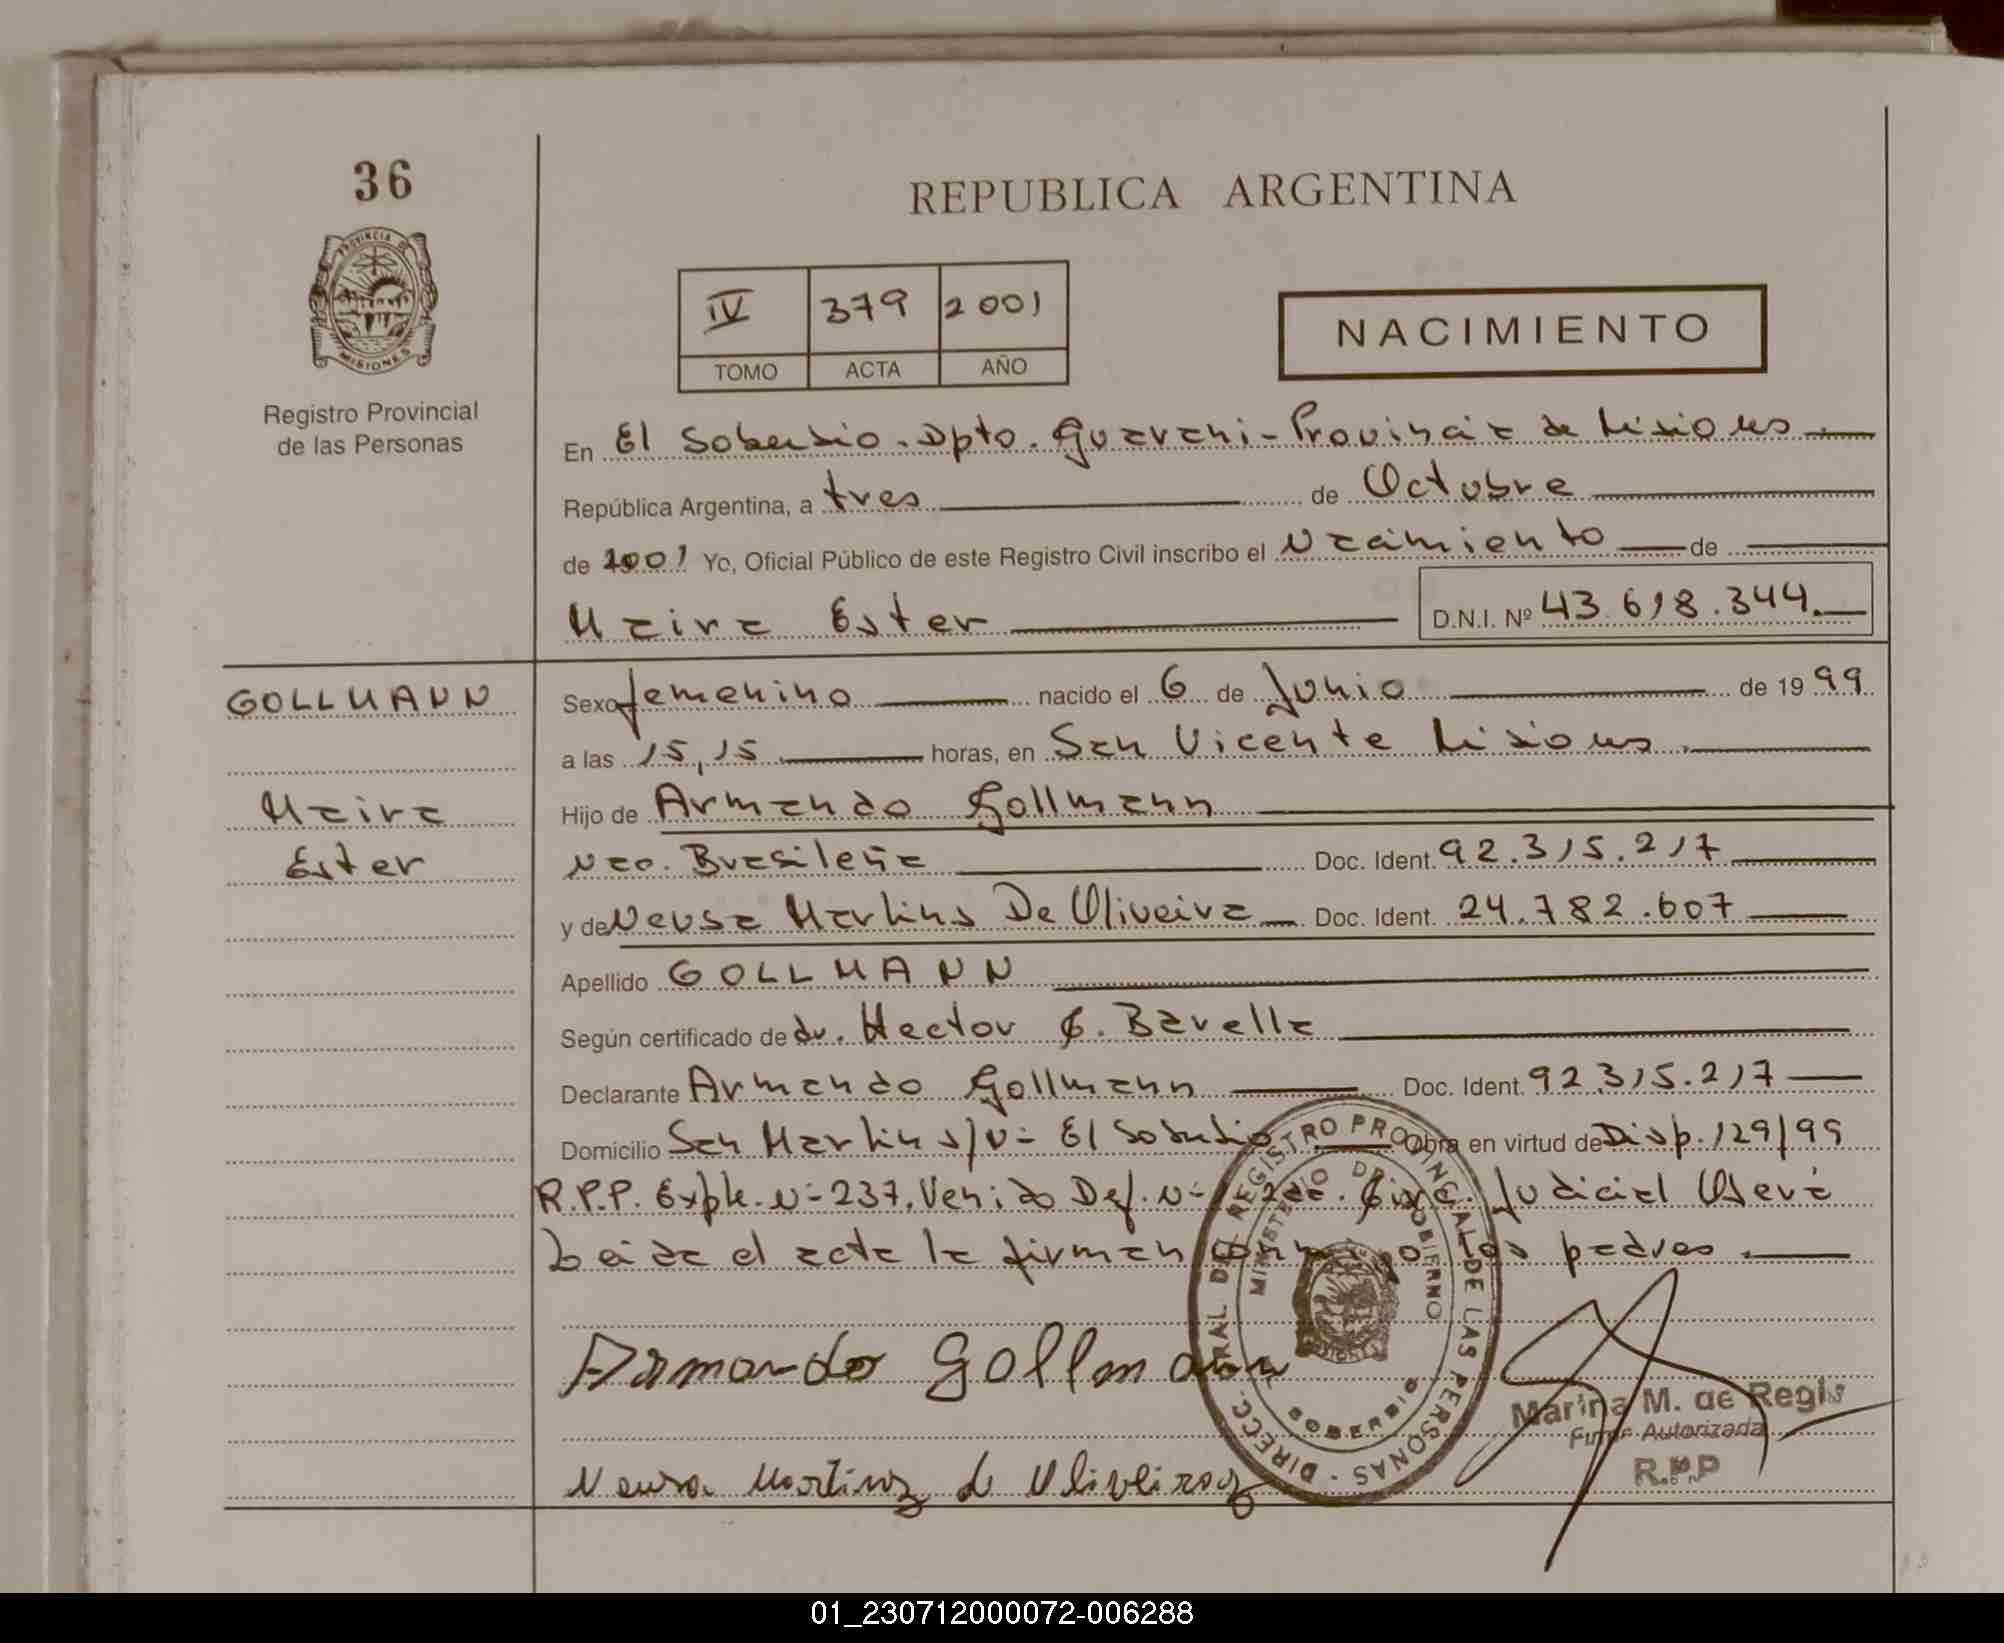 36
REPUBLICA ARGENTINA
PROVINCIA DE
MISIONES
Registro Provincial
de las Personas
IV 379 2001
TOMO ACTA AÑO
NACIMIENTO
En El Soberbio. Dpto. Guarani - Provincia de Misiones.
República Argentina, a tres de Octubre
de 2001 Yo, Oficial Público de este Registro Civil inscribo el Nacimiento de
Maira Ester D.N.I. Nº 43.618.344.
GOLLMANN
Sexo femenino nacido el 6 de Junio de 1999
a las 15,15 horas, en San Vicente Misiones.
Maira
Hijo de Armando Gollmann
Ester
Nac. Brasileña Doc. Ident. 92.315.217
y de Neusa Martins De Oliveira Doc. Ident. 24.782.607
Apellido GOLLMANN
Según certificado de dr. Hector G. Barella
Declarante Armando Gollmann Doc. Ident. 92.315.217
Domicilio San Martin s/Nº El Soberbio Obra en virtud de Disp. 129/99
R.P.P. Expte. Nº 237. Venido Def. Nº 2da. Circ. Judicial Oberá
Leida el acta la firman conmigo los padres.
Armando Gollmann
Neusa Martinz de Oliveira
DIRECC. GRAL DEL REGISTRO PROVINCIAL DE LAS PERSONAS
MINISTERIO DE GOBIERNO
SOBERBIO
Marina M. de Regis
Firma Autorizada
R.P.P
01_230712000072-006288